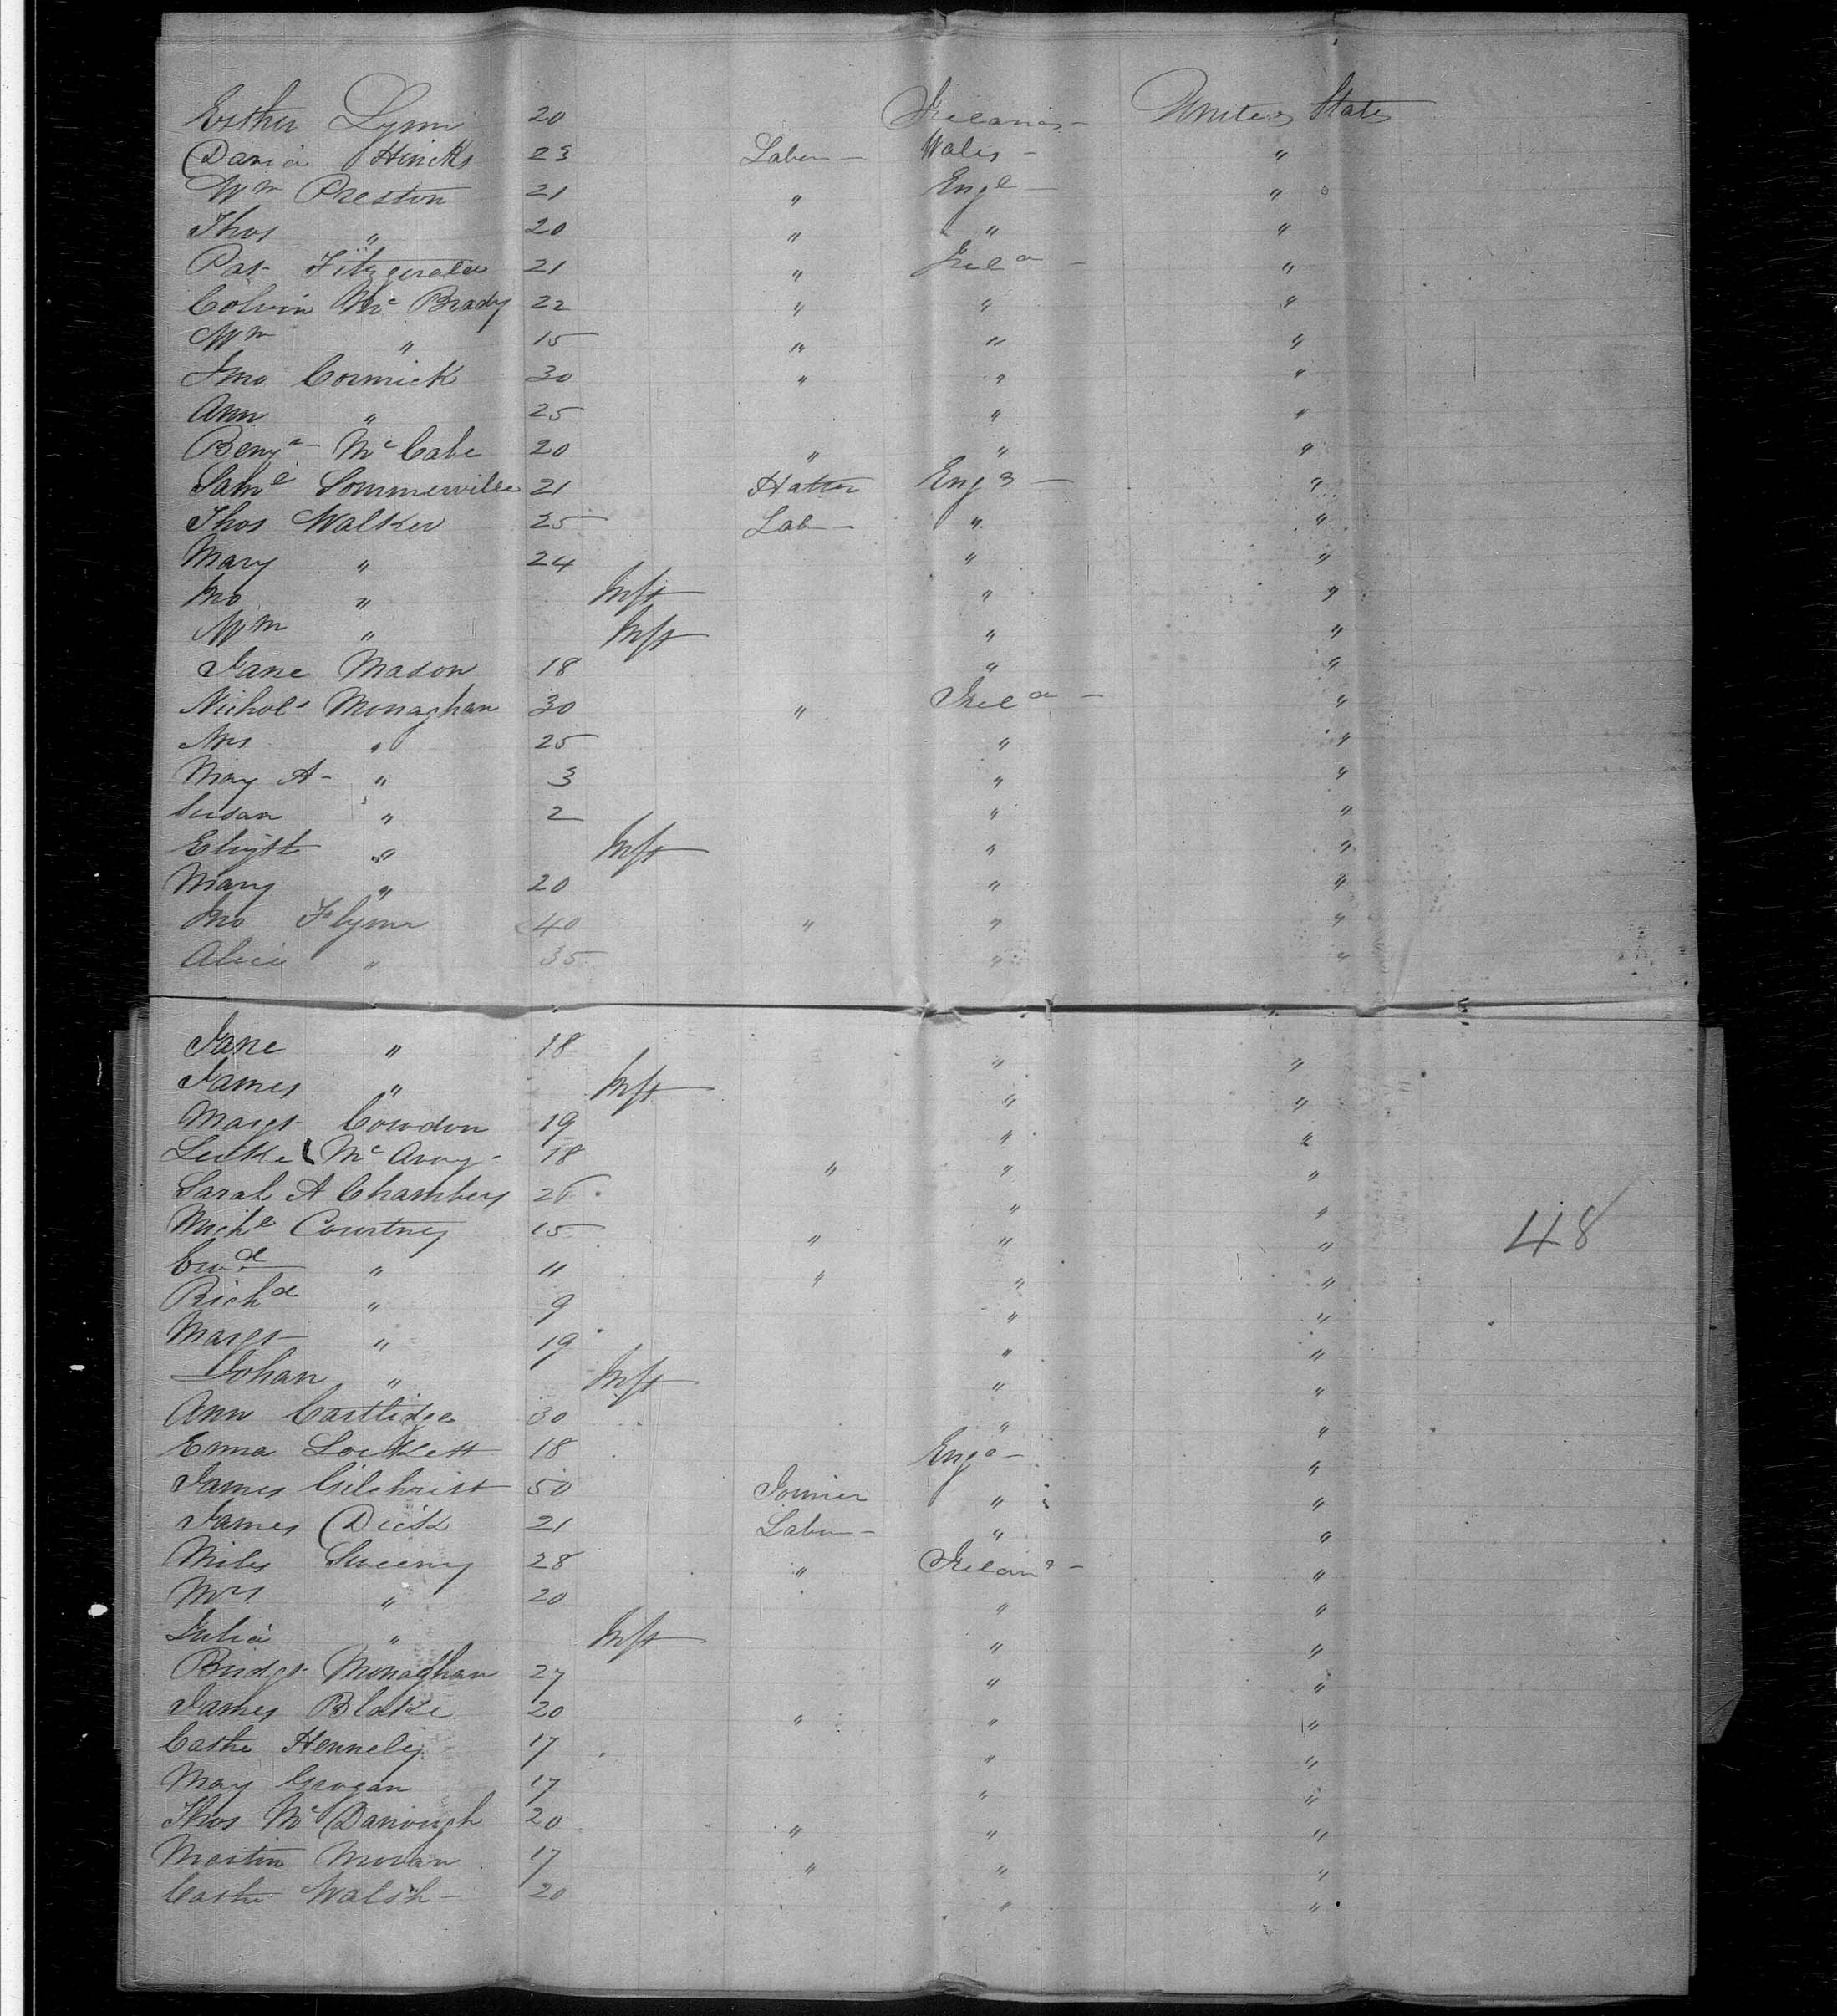 Esther Lynn 20 Ireland - United States
David Hincks 23 Labr - Wales - "
Wm Preston 21 " Engd - "
Thos " 20 " " "
Pat Fitzgerald 21 " Ireld - "
Colvin Mc Brady 22 " " "
Wm " 15 " " "
Jno Cormick 30 " " "
Ann " 25 " "
Benja Mc Cabe 20 " " "
Saml Sommerville 21 Hatter Engd - "
Thos Walker 25 Lab - " "
Mary " 24 " "
Jno " Inft " "
Wm " Inft " "
Jane Mason 18 " "
Nichols Monaghan 30 " Ireld - "
Mrs " 25 " "
Mary A - " 3 " "
Susan " 2 " "
Elizth " Inft " "
Mary " 20 " "
Jno Flynn 40 " " "
Alice " 35 " "
Jane " 18 " "
James " Inft " "
Margt Cowdon 19 " "
Luke Mc Avoy - 18 " " "
Sarah A Chambers " "
Michl Courtney 15 " " "
Edwd " 11 " " "
Richd " 9 " "
Margt " 19 " "
Johan " Inft " "
Ann Cartlidge 30 " "
Emma Lockett 18 Engd - "
James Gilchrist 50 Joiner " "
James Dick 21 Labr - " "
Miles Sweeny 28 " Ireland - "
Mrs " 20 " "
Julia " Inft " "
Bridgt Monaghan 27 " "
James Blake 20 " " "
Cathe Hennely 17 " "
Mary Grogan 17 " "
Thos Mc Danough 20 " " "
Martin Moran 17 " " "
Cathe Walsh - 20 " "
48